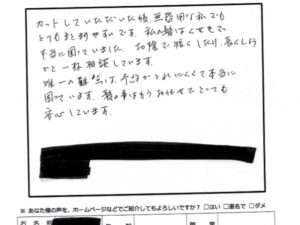 カットしていただいた後、無器用な私でも
とてもまとめやすいです。私の髪はくせ毛で
本当に困っていました。お陰で短くしたり、長くしよう
かと一杯相談しています。
唯一の難点は、予約がとれにくくて本当に
困っています。髪の事はもうお任せでとっても
安心しています。
※ あなた様の声を、ホームページなどでご紹介してもよろしいですか？ □はい □匿名で □ダメ
お名前